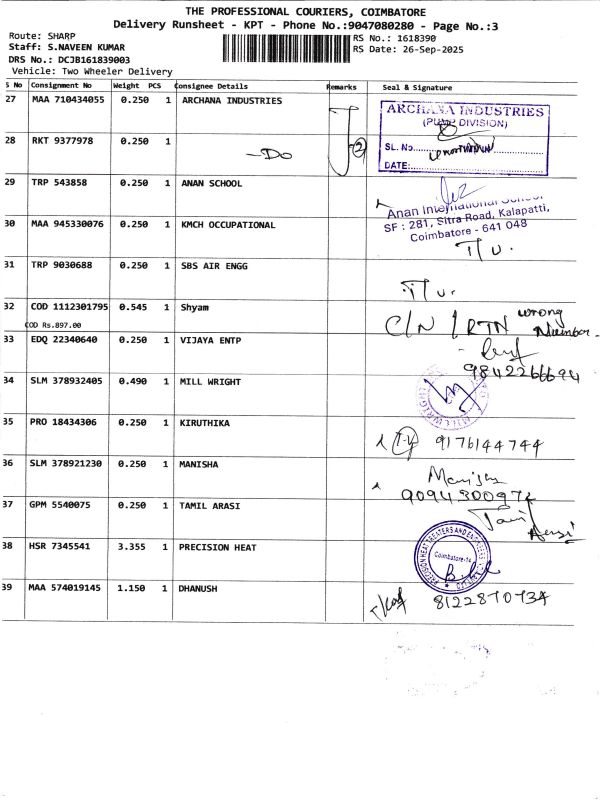 THE PROFESSIONAL COURIERS, COIMBATORE
Delivery Runsheet - KPT - Phone No.:9047080280 - Page No.:3
Route: SHARP
RS No.: 1618390
Staff: S.NAVEEN KUMAR
RS Date: 26-Sep-2025
DRS No.: DCJB161839003
Vehicle: Two Wheeler Delivery
S No Consignment No Weight PCS Consignee Details Remarks Seal & Signature
27 MAA 710434055 0.250 1 ARCHANA INDUSTRIES
ARCHANA INDUSTRIES
(PUMP DIVISION)
SL. No.
DATE:
28 RKT 9377978 0.250 1
-Do
2
29 TRP 543858 0.250 1 ANAN SCHOOL
Anan International School
SF : 281, Sitra Road, Kalapatti,
Coimbatore - 641 048
30 MAA 945330076 0.250 1 KMCH OCCUPATIONAL
T/u.
31 TRP 9030688 0.250 1 SBS AIR ENGG
T/u.
32 COD 1112301795 0.545 1 Shyam
COD Rs.897.00
C/N / RTN wrong Number
33 EDQ 22340640 0.250 1 VIJAYA ENTP
9842266694
34 SLM 378932405 0.490 1 MILL WRIGHT
35 PRO 18434306 0.250 1 KIRUTHIKA
9176144744
36 SLM 378921230 0.250 1 MANISHA
Manisha
37 GPM 5540075 0.250 1 TAMIL ARASI
38 HSR 7345541 3.355 1 PRECISION HEAT
Coimbatore-14
39 MAA 574019145 1.150 1 DHANUSH